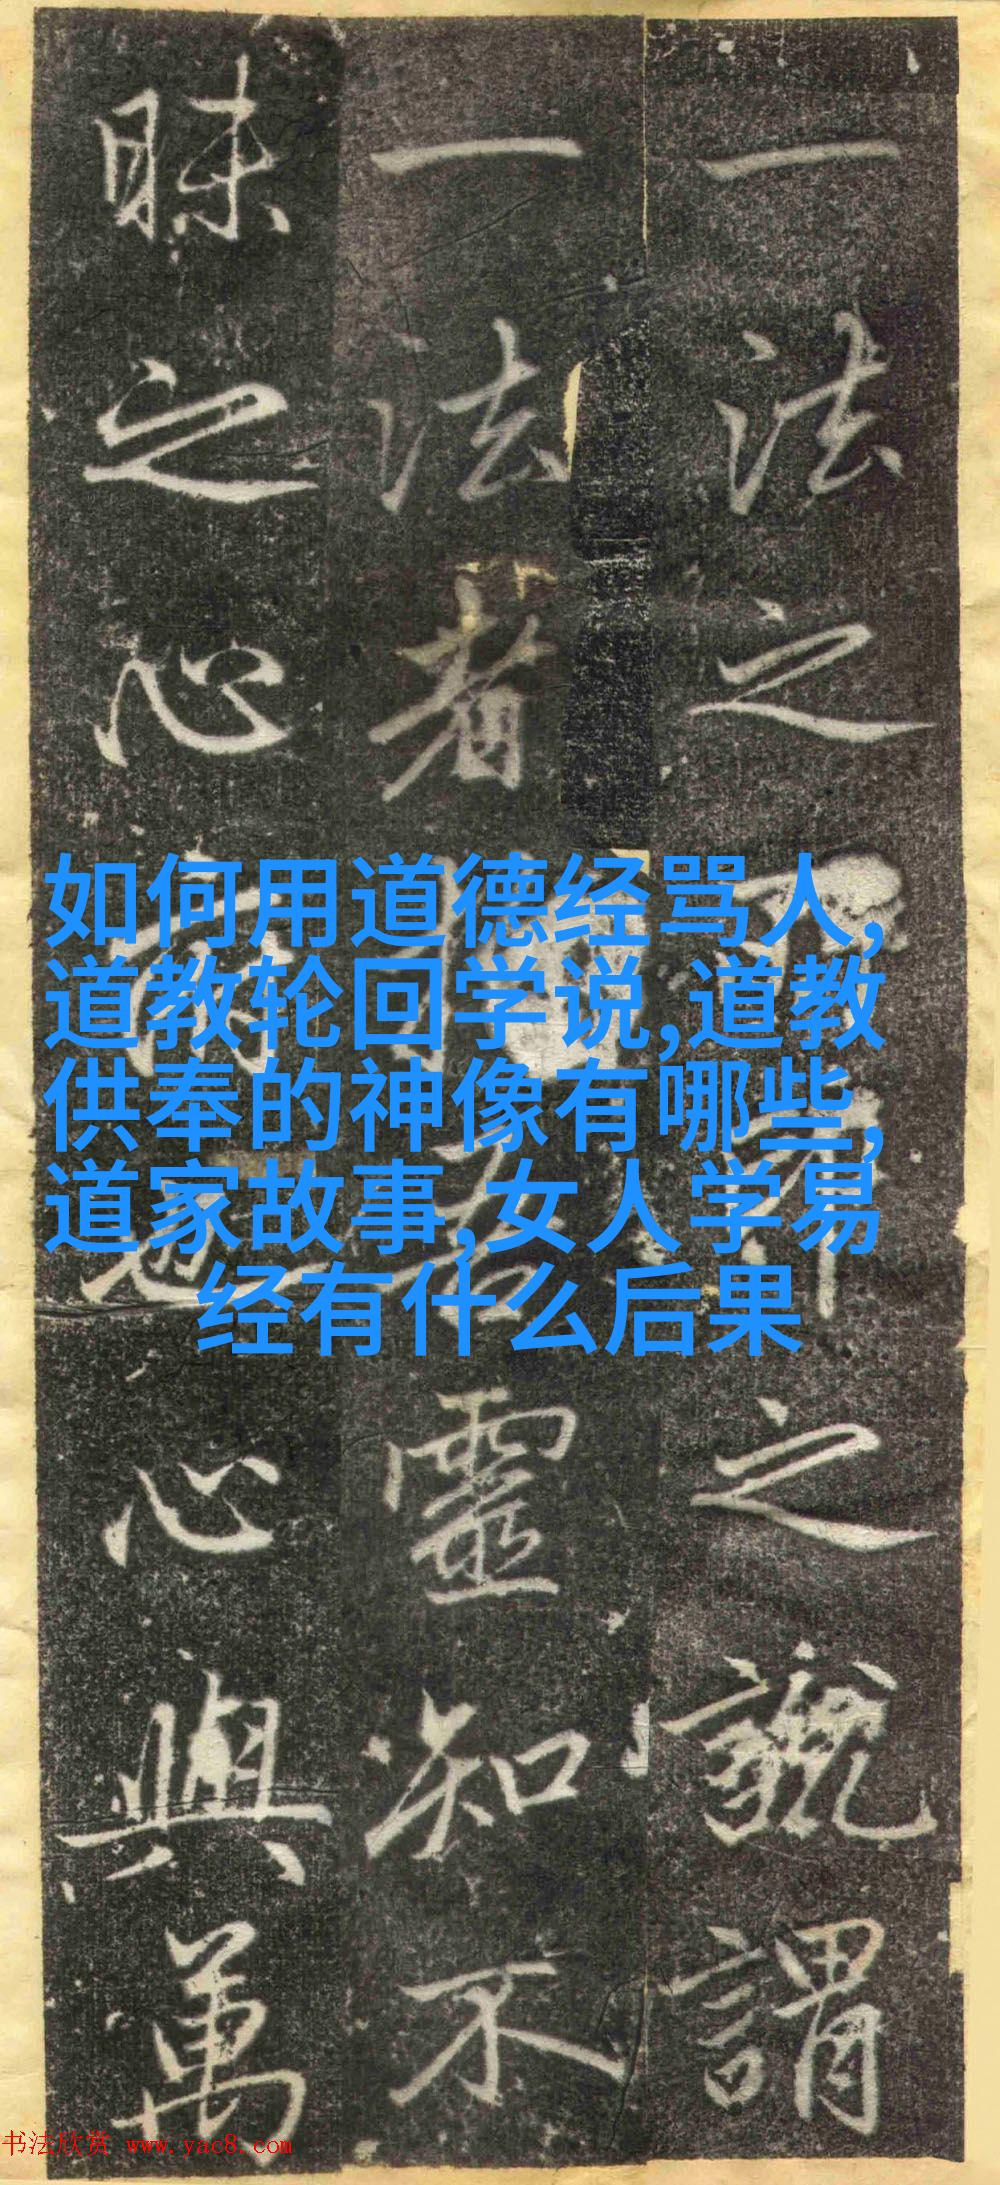 一法之
之
謂
一法者
靈知不
昧之心
心與萬
如何用道德经骂人,
道教轮回学说,道教
供奉的神像有哪些,
道家故事,女人学易
经有什么后果
书法欣赏 www.yac8.com